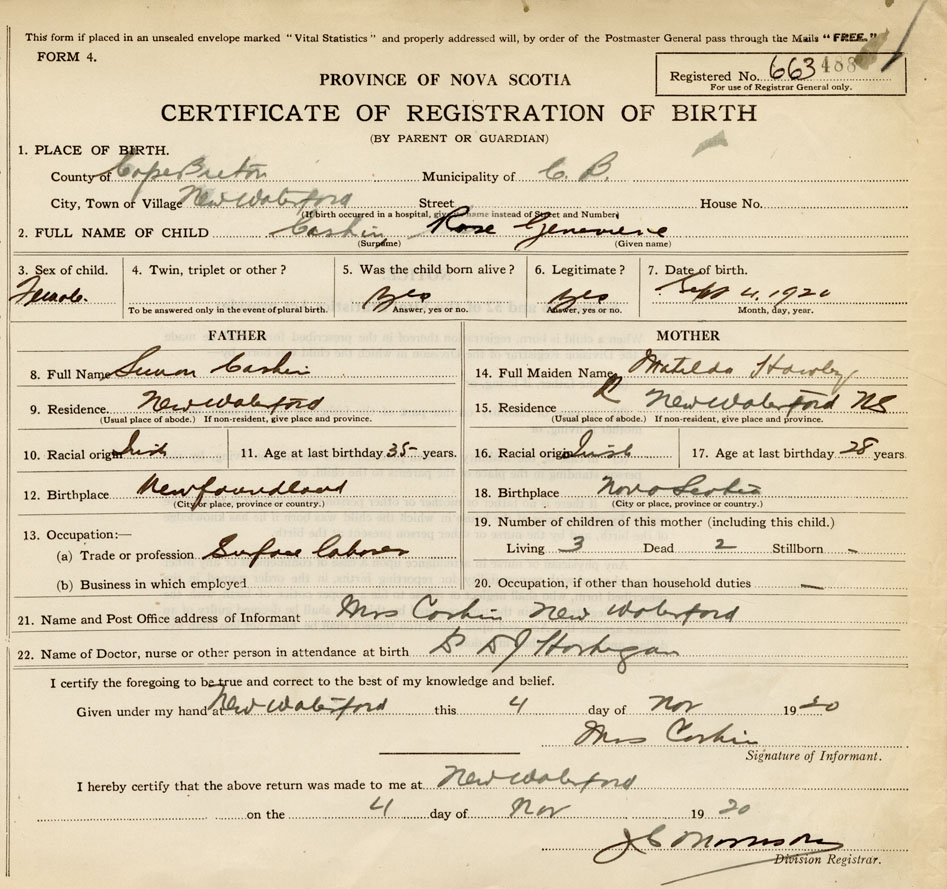 This form if placed in an unsealed envelope marked "Vital Statistics" and properly addressed will, by order of the Postmaster General pass through the Mails "FREE."
FORM 4.
PROVINCE OF NOVA SCOTIA
Registered No. 663 488
For use of Registrar General only.
CERTIFICATE OF REGISTRATION OF BIRTH
(BY PARENT OR GUARDIAN)
1. PLACE OF BIRTH.
County of Cape Breton Municipality of C. B.
City, Town or Village New Waterford Street House No.
(If birth occurred in a hospital, give its name instead of Street and Number)
2. FULL NAME OF CHILD Cashin Rose Genevieve
(Surname) (Given name)
3. Sex of child. 4. Twin, triplet or other? 5. Was the child born alive? 6. Legitimate? 7. Date of birth.
Female. yes yes Sept 4, 1920
To be answered only in the event of plural birth. Answer, yes or no. Answer, yes or no. Month, day, year.
FATHER MOTHER
8. Full Name Simon Cashin 14. Full Maiden Name Matilda Hawley
9. Residence New Waterford 15. Residence New Waterford NS
(Usual place of abode.) If non-resident, give place and province. (Usual place of abode.) If non-resident, give place and province.
10. Racial origin Irish 11. Age at last birthday 35 years. 16. Racial origin Irish 17. Age at last birthday 28 years
12. Birthplace Newfoundland 18. Birthplace Nova Scotia
(City or place, province or country.) (City or place, province or country.)
13. Occupation:— 19. Number of children of this mother (including this child.)
(a) Trade or profession Surface laborer Living 3 Dead 2 Stillborn –
(b) Business in which employed 20. Occupation, if other than household duties —
21. Name and Post Office address of Informant Mrs Cashin New Waterford
22. Name of Doctor, nurse or other person in attendance at birth Dr DJ Hartigan
I certify the foregoing to be true and correct to the best of my knowledge and belief.
Given under my hand at New Waterford this 4 day of Nov 1920
Mrs Cashin
Signature of Informant.
I hereby certify that the above return was made to me at New Waterford
on the 4 day of Nov 1920
J C Morrison
Division Registrar.